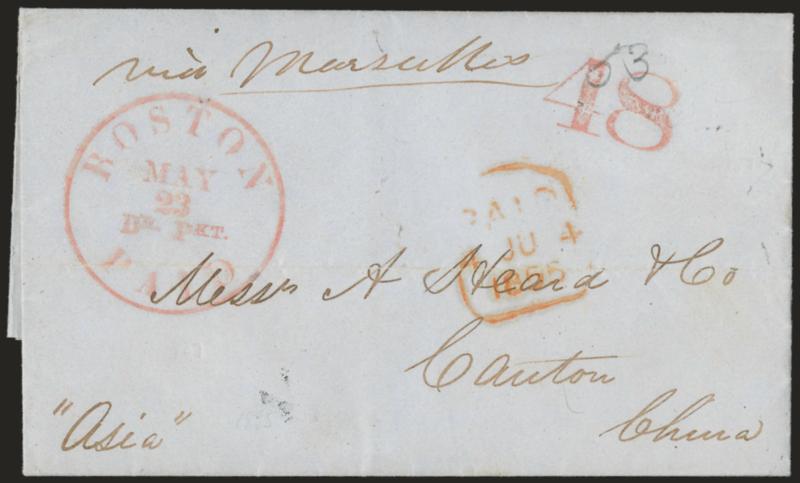 via Marseilles
53
48
BOSTON
MAY
23
Br. PKT.
PAID
PAID
JU 4
1855
Messrs A Heard & Co
Canton
China
"Asia"